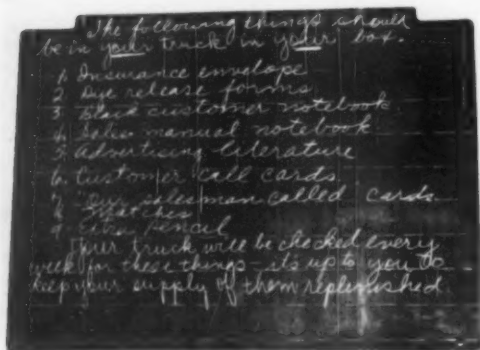 The following things should
be in your truck in your box.
1. Insurance envelope
2. Dye release forms
3. Black customer notebook
4. Sales manual notebook
5. Advertising literature
6. Customer call cards
7. "Our salesman called" cards
8. Matches
9. Extra pencil
Your truck will be checked every
week for these things - it's up to you to
keep your supply of them replenished.